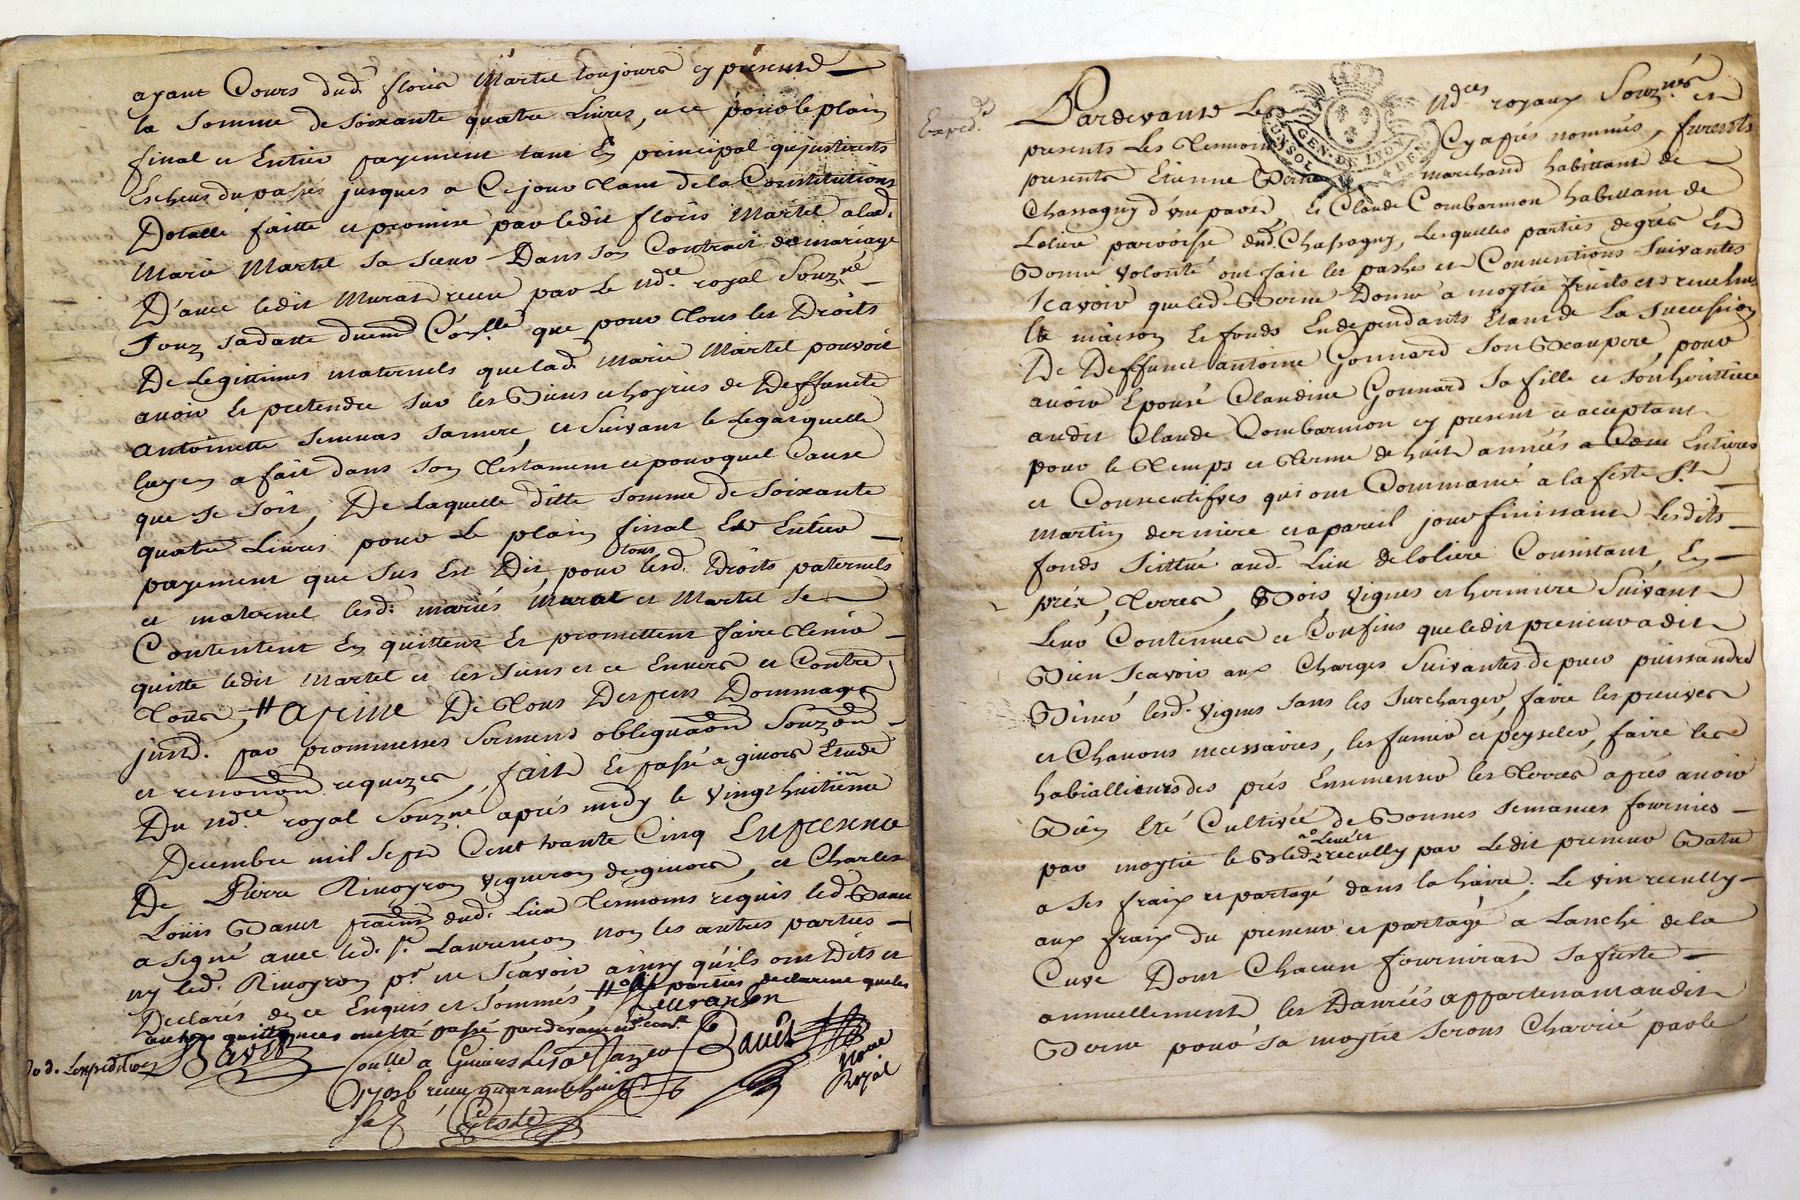 ayant Cours dud. floris Martel toujours cy present
la Somme de soixante quatre Livres, et ce pour le plain
final et Entier payement tant En principal qu'jnterests
Escheus du passés jusques a Ce jour tant de la Constitution
Dotalle faitte et promise par ledit floris Martel alad.
Marie Martel sa soeur Dans son Contrait de mariage
D'avec ledit Murat receu par Le nore. royal Souzné
Souz sadatte duemt Conllé que pour tous les Droits
De Legittimes maternels que lad. Marie Martel pouvoit
avoir Et pretendre sur les Biens et hoyries de Deffuncte
antoinette samere, et suivant le Legat quelle
luy en a fait dans son testament et pour quel Cause
que se soit, De Laquelle ditte somme de soixante
quatre Livres pour Le plain final Et Entier
payement que sus Est Dit, pour tous lesd. Droits paternels
et maternel lesd. mariés Murat et Martel se
Contentent En quittent Et promettent faire tenir
quitte ledit Martel et les siens et ce Envers et Contre
tous, # a peine De tous Despens Dommages
jnterd. par prommesses sermens obliguaon Souzon
et renonon requizes, fait Et passé a givors Etude
Du nore. royal Souzné. aprés midy le vingt huitiême
Decembre mil sept Cent trante Cinq En presence
De Pierre Rivoyron vigneron de givors, et Charles
Loüis Bavet dud. Lieu tesmoins requis led. Bavet
a signé avec led. sr. Laurençon non les autres parties
ny led. Rivoyron pr. ne sçavoir ainsy qu'ils ont Dits et
Declarés de ce Enquis et sommés, # parties declarent que les
autres quittances ont été passé pardevant
Laurançon
Bavet
Contlle a Givors Le
receu quarante huit s
Nore
Royal
Exped.
Pardevant Les nores royaux Souznés et
presents Les tesmoins Cy aprés nommés, furent
presents Etienne Berne marchand habittant de
Chassagny d'une part, Et Claude Combarmon habittant de
Loliere parroisse dud. Chassagny, Lesquelles parties de grés Et
Bonne volonté ont fait les pashes et Conventions suivantes
scavoir que led. Berne Donne a moytié fruits et revenus
la maison Et fonds En dependants Etant de La succession
De Deffunct antoine Gonnard son Beaupere, pour
avoir Epousé Claudine Gonnard sa fille et son hérittiere
audit Claude Combarmon cy present et acceptant
pour le temps et terme de huit années a Cour Entieres
et Consecutifves qui ont Commancé a la feste St.
Martin derniere et a pareil jour finissant Lesdits
fonds sittué aud. Lieu de loliere Consistant, En
préz, terres, Bois, vignes et hermiere suivant
Leur Contenues et Confins que ledit preneur a dit
Bien scavoir aux Charges suivantes de
Biner lesd. vignes sans les surcharger, faire les preuves
et Chavons necessaires, les fumer et peysseler, faire les
des prés Emmenner les terres aprés avoir
Bien Eté Cultivée de Bonnes semances fournies
par moytié le Bled Levé et recully par Ledit preneur Battu
a ses fraix et partagé dans la haire, Le vin recully
aux fraix du preneur et partagé a Lanche de la
Cuve Dont Chacun fournirat sa fuste
annuellement les Danrées appartenant audit
Berne pour sa moytié seront Charrié par le
GEN. DE LYON